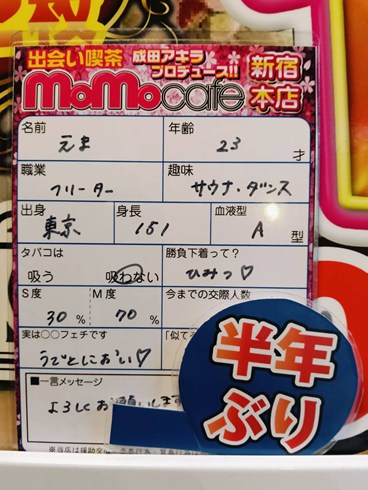 出会い喫茶 成田アキラ
プロデュース!! 新宿
MoMocafe 本店
名前 年齢
えま 23 才
職業 趣味
フリーター サウナ・ダンス
出身 身長 血液型
東京 151 A 型
タバコは 勝負下着って?
吸う 吸わない ひみつ♡
S度 M度 今までの交際人数
30% 70%
実は○○フェチです 「似てる
うでとにおい♡
■一言メッセージ
よろしくお願いします
半年
ぶり
※当店は援助